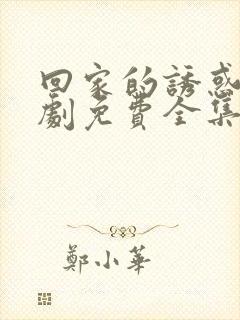 回家的誘惑
劇免費全集
鄭小華